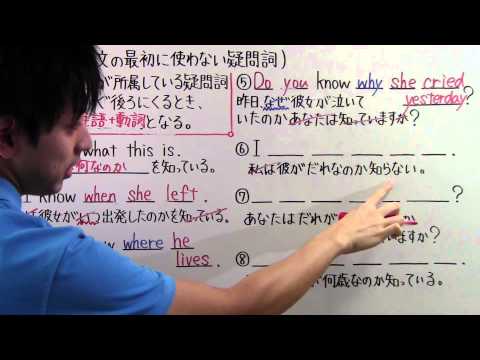 文の最初に使わない疑問詞)
が所属している疑問詞
ぐ後ろにくるとき、
主語+動詞となる。
what this is.
何なのか を知っている。
I know when she left.
彼女がいつ出発したのかを知っている。
know where he
lives.
⑤Do you know why she cried
yesterday?
昨日、なぜ彼女が泣いて
いたのかあなたは知っていますか?
⑥I ___ ___ ___ ___ ___.
私は彼がだれなのか知らない。
⑦ ___ ___ ___ ___ ___?
あなたはだれが
か
ますか?
⑧ ___ ___ ___ ___ ___.
が何歳なのか知っている。